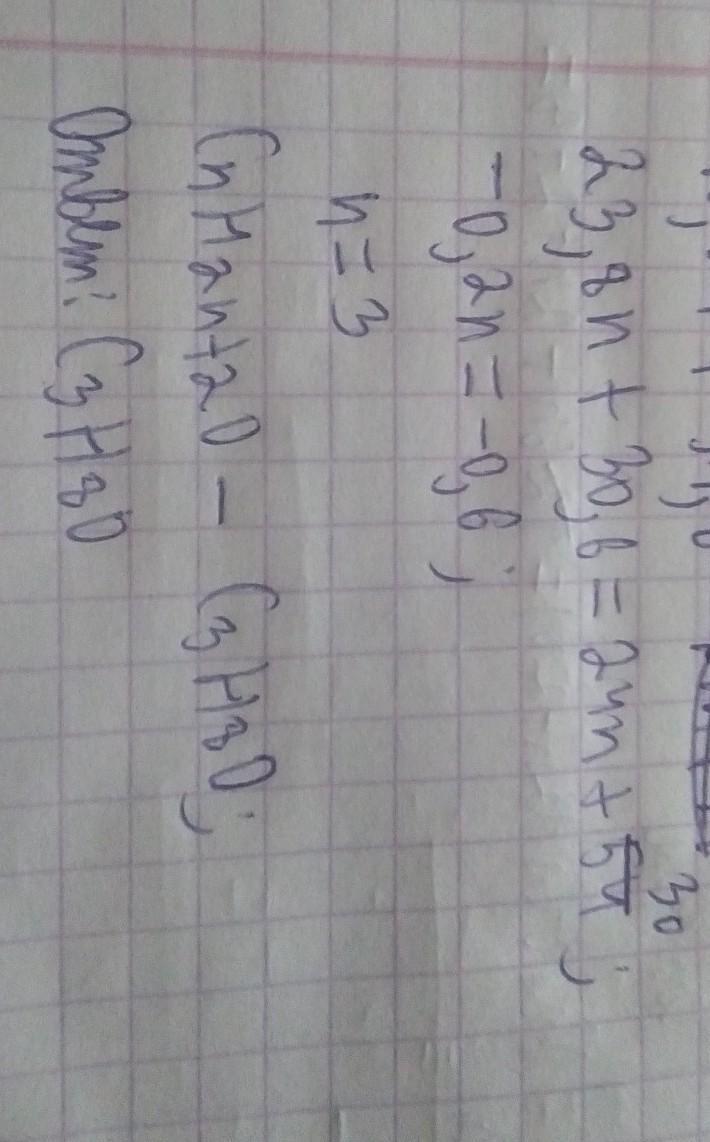 23,8n + 30,6 = 24n + 30;
-0,2n = -0,6;
n = 3
CnH2n+2O - C3H8O;
Ответ: C3H8O